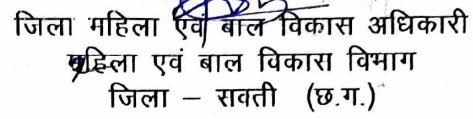 जिला महिला एवं बाल विकास अधिकारी
महिला एवं बाल विकास विभाग
जिला – सक्ती (छ.ग.)